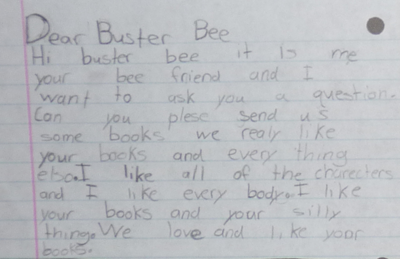 Dear Buster Bee
Hi buster bee it is me
your bee friend and I
want to ask you a question.
Can you plese send us
some books we realy like
your books and every thing
else.I like all of the charecters
and I like every body.I like
your books and your silly
thing.We love and like your
books.